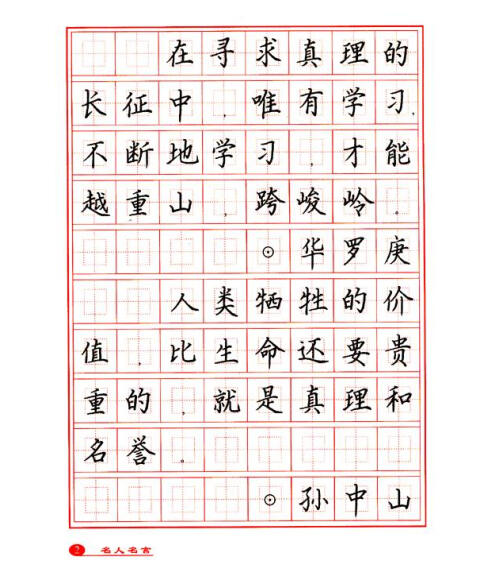 在寻求真理的
长征中，唯有学习，
不断地学习，才能
越重山，跨峻岭。
⊙华罗庚
人类牺牲的价
值，比生命还要贵
重的，就是真理和
名誉。
⊙孙中山
2 名人名言